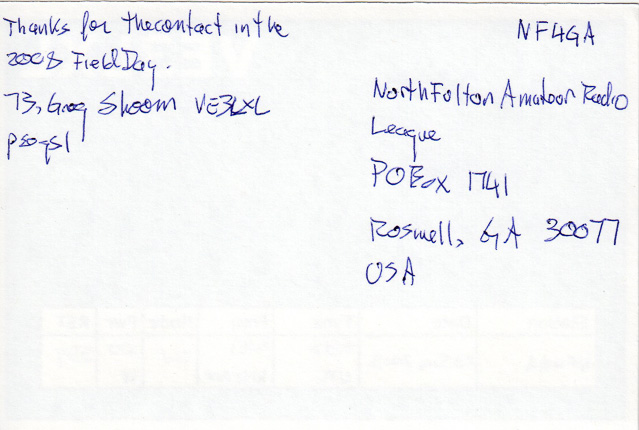 Thanks for the contact in the
2008 Field Day.
73, Greg Shoom VE3LXL
pse qsl
NF4GA
North Fulton Amateur Radio
League
PO Box 1741
Roswell, GA 30077
USA